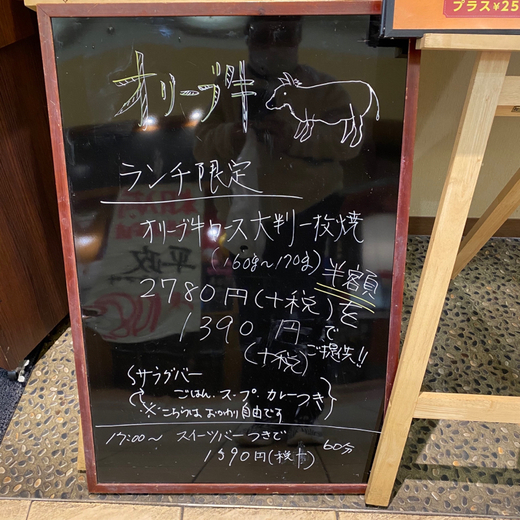 プラス¥25
オリーブ牛
ランチ限定
オリーブ牛ロース大判一枚焼
(160g~170g)半額
2780円(+税)を
1390円で
(+税)ご提供!!
サラダバー
ごはん、スープ、カレーつき
※こちらはおかわり自由です
17:00~ スイーツバーつきで 60分
1590円(税+)